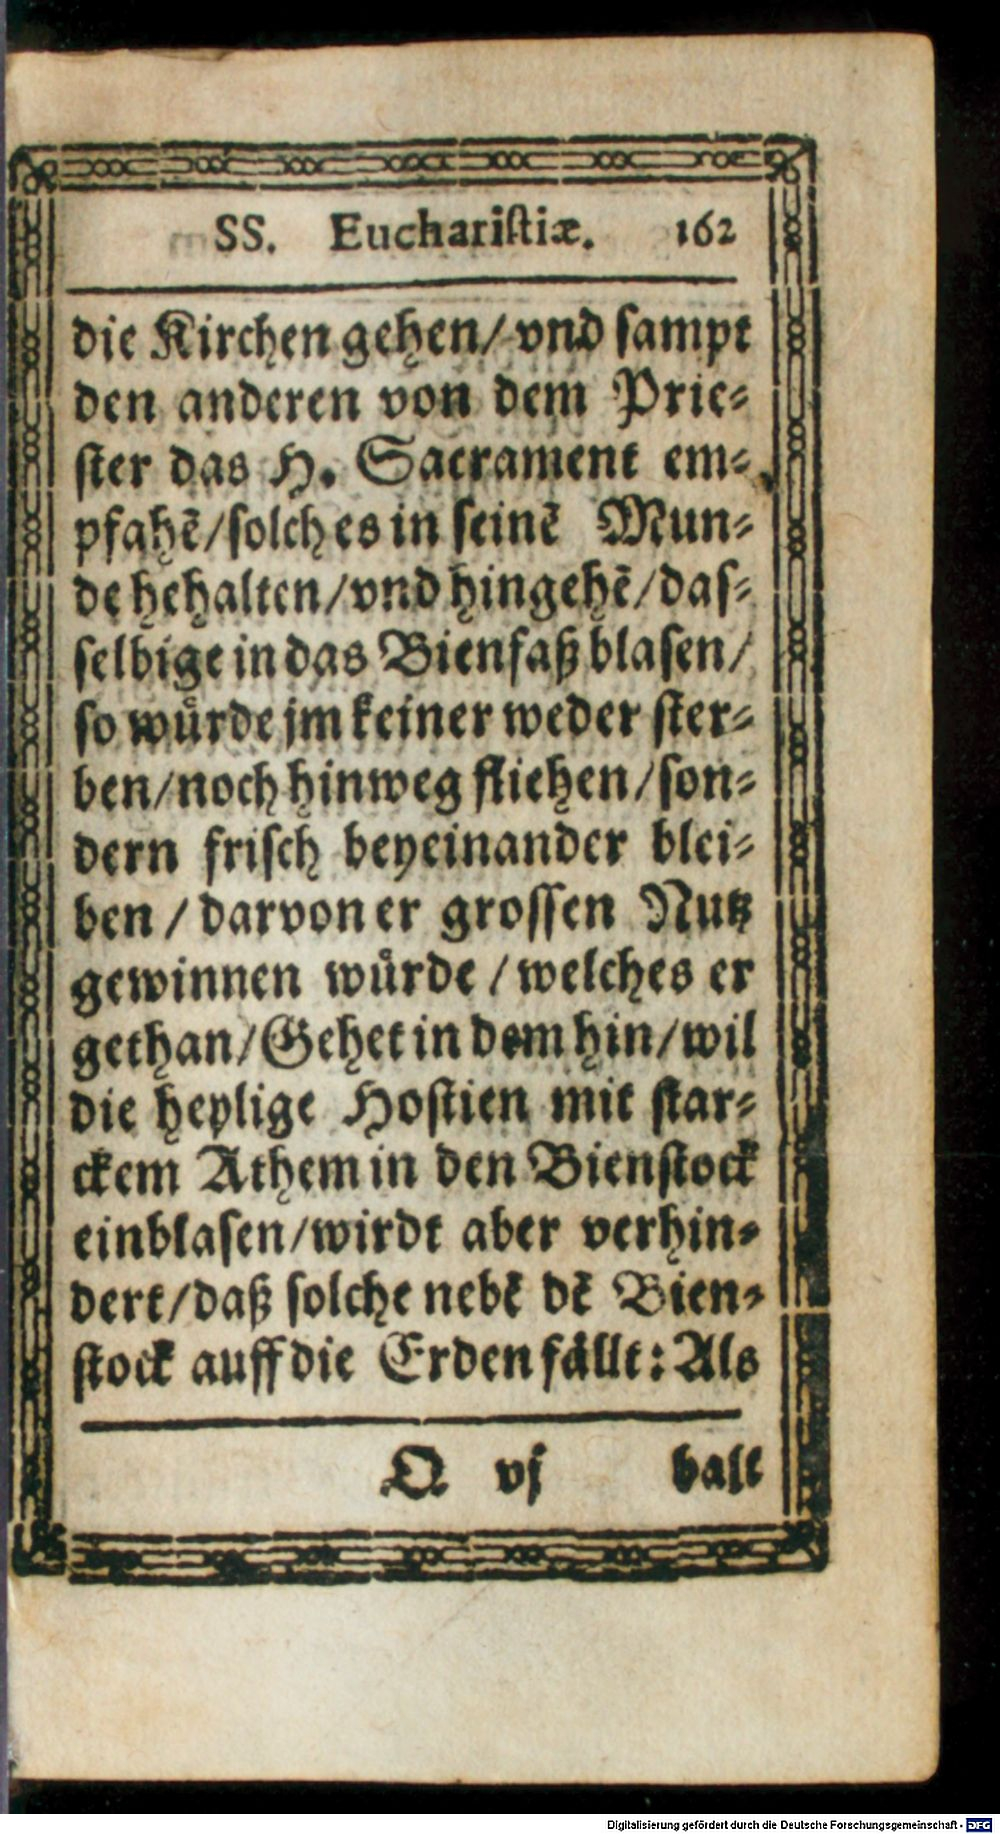 SS. Euchariſtiæ. 162
die Kirchen gehen/ vnd ſampt
den anderen von dem Prie⸗
ſter das H. Sacrament em⸗
pfahẽ/ſolches in ſeinẽ Mun⸗
de hehalten/vnd hingehẽ/daſ⸗
ſelbige in das Bienfaß blaſen/
ſo wuͤrde jm keiner weder ſter⸗
ben/noch hinweg fliehen/ſon⸗
dern friſch beyeinander blei⸗
ben / darvon er groſſen Nutz
gewinnen wuͤrde / welches er
gethan/Gehet in dem hin/wil
die heylige Hoſtien mit ſtar⸗
ckem Athem in den Bienſtock
einblaſen/wirdt aber verhin⸗
dert/daß ſolche nebẽ dẽ Bien⸗
ſtock auff die Erden fällt: Als
Q vj balt
Digitalisierung gefördert durch die Deutsche Forschungsgemeinschaft - DFG